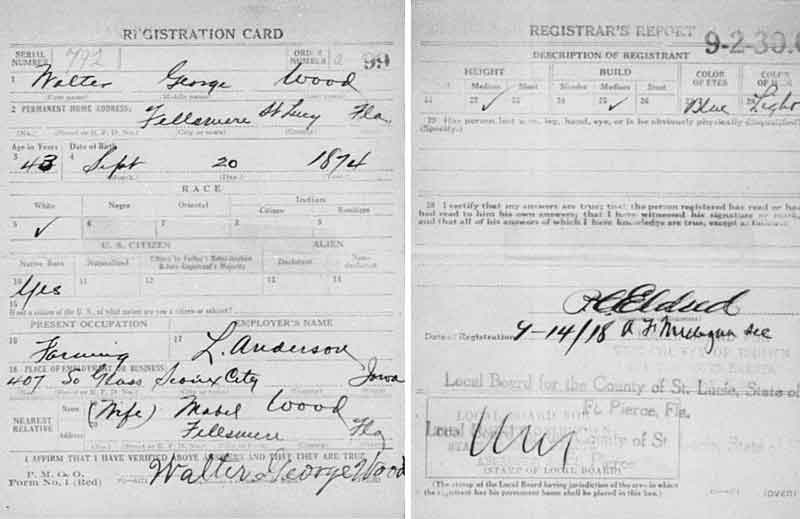 REGISTRATION CARD
SERIAL NUMBER 792 ORDER NUMBER a 99
1 Walter George Wood
(First name) (Middle name) (Last name)
2 PERMANENT HOME ADDRESS:
Fellsmere St Lucy Fla.
(No.) (Street or R. F. D. No.) (City or town) (County) (State)
Age in Years Date of Birth
3 43 4 Sept 20 1874
(Month.) (Day.) (Year.)
RACE
White Negro Oriental Indian
Citizen Noncitizen
5 ✓ 6 7 8 9
U. S. CITIZEN ALIEN
Native Born Naturalized Citizen by Father's Naturalization Before Registrant's Majority Declarant Non-declarant
10 Yes 11 12 13 14
15
If not a citizen of the U. S., of what nation are you a citizen or subject?
PRESENT OCCUPATION EMPLOYER'S NAME
16 Farming 17 L. Anderson
18 PLACE OF EMPLOYMENT OR BUSINESS
407 So Glass Sioux City Iowa
NEAREST RELATIVE Name (Wife) Mabel Wood
Address Fellsmere Fla
I AFFIRM THAT I HAVE VERIFIED ABOVE ANSWERS AND THAT THEY ARE TRUE
P. M. G. O.
Form No. 1 (Red) Walter George Wood
REGISTRAR'S REPORT
9-2-30.
DESCRIPTION OF REGISTRANT
HEIGHT BUILD COLOR OF EYES COLOR OF
Medium Short Slender Medium Stout
21 22 ✓ 23 24 25 ✓ 26 27 Blue 28 Light
29 Has person lost arm, leg, hand, eye, or is he obviously physically disqualified?
(Specify.)
30 I certify that my answers are true; that the person registered has read or has
had read to him his own answers; that I have witnessed his signature or mark,
and that all of his answers of which I have knowledge are true, except as follows:
Date of Registration 9-14/18
Local Board for the County of St. Lucie, State of
Ft. Pierce, Fla.
LOCAL BOARD
Local Board County of St
Pierce
(STAMP OF LOCAL BOARD)
(The stamp of the Local Board having jurisdiction of the area in which
the registrant has his permanent home shall be placed in this box.)
(OVER)